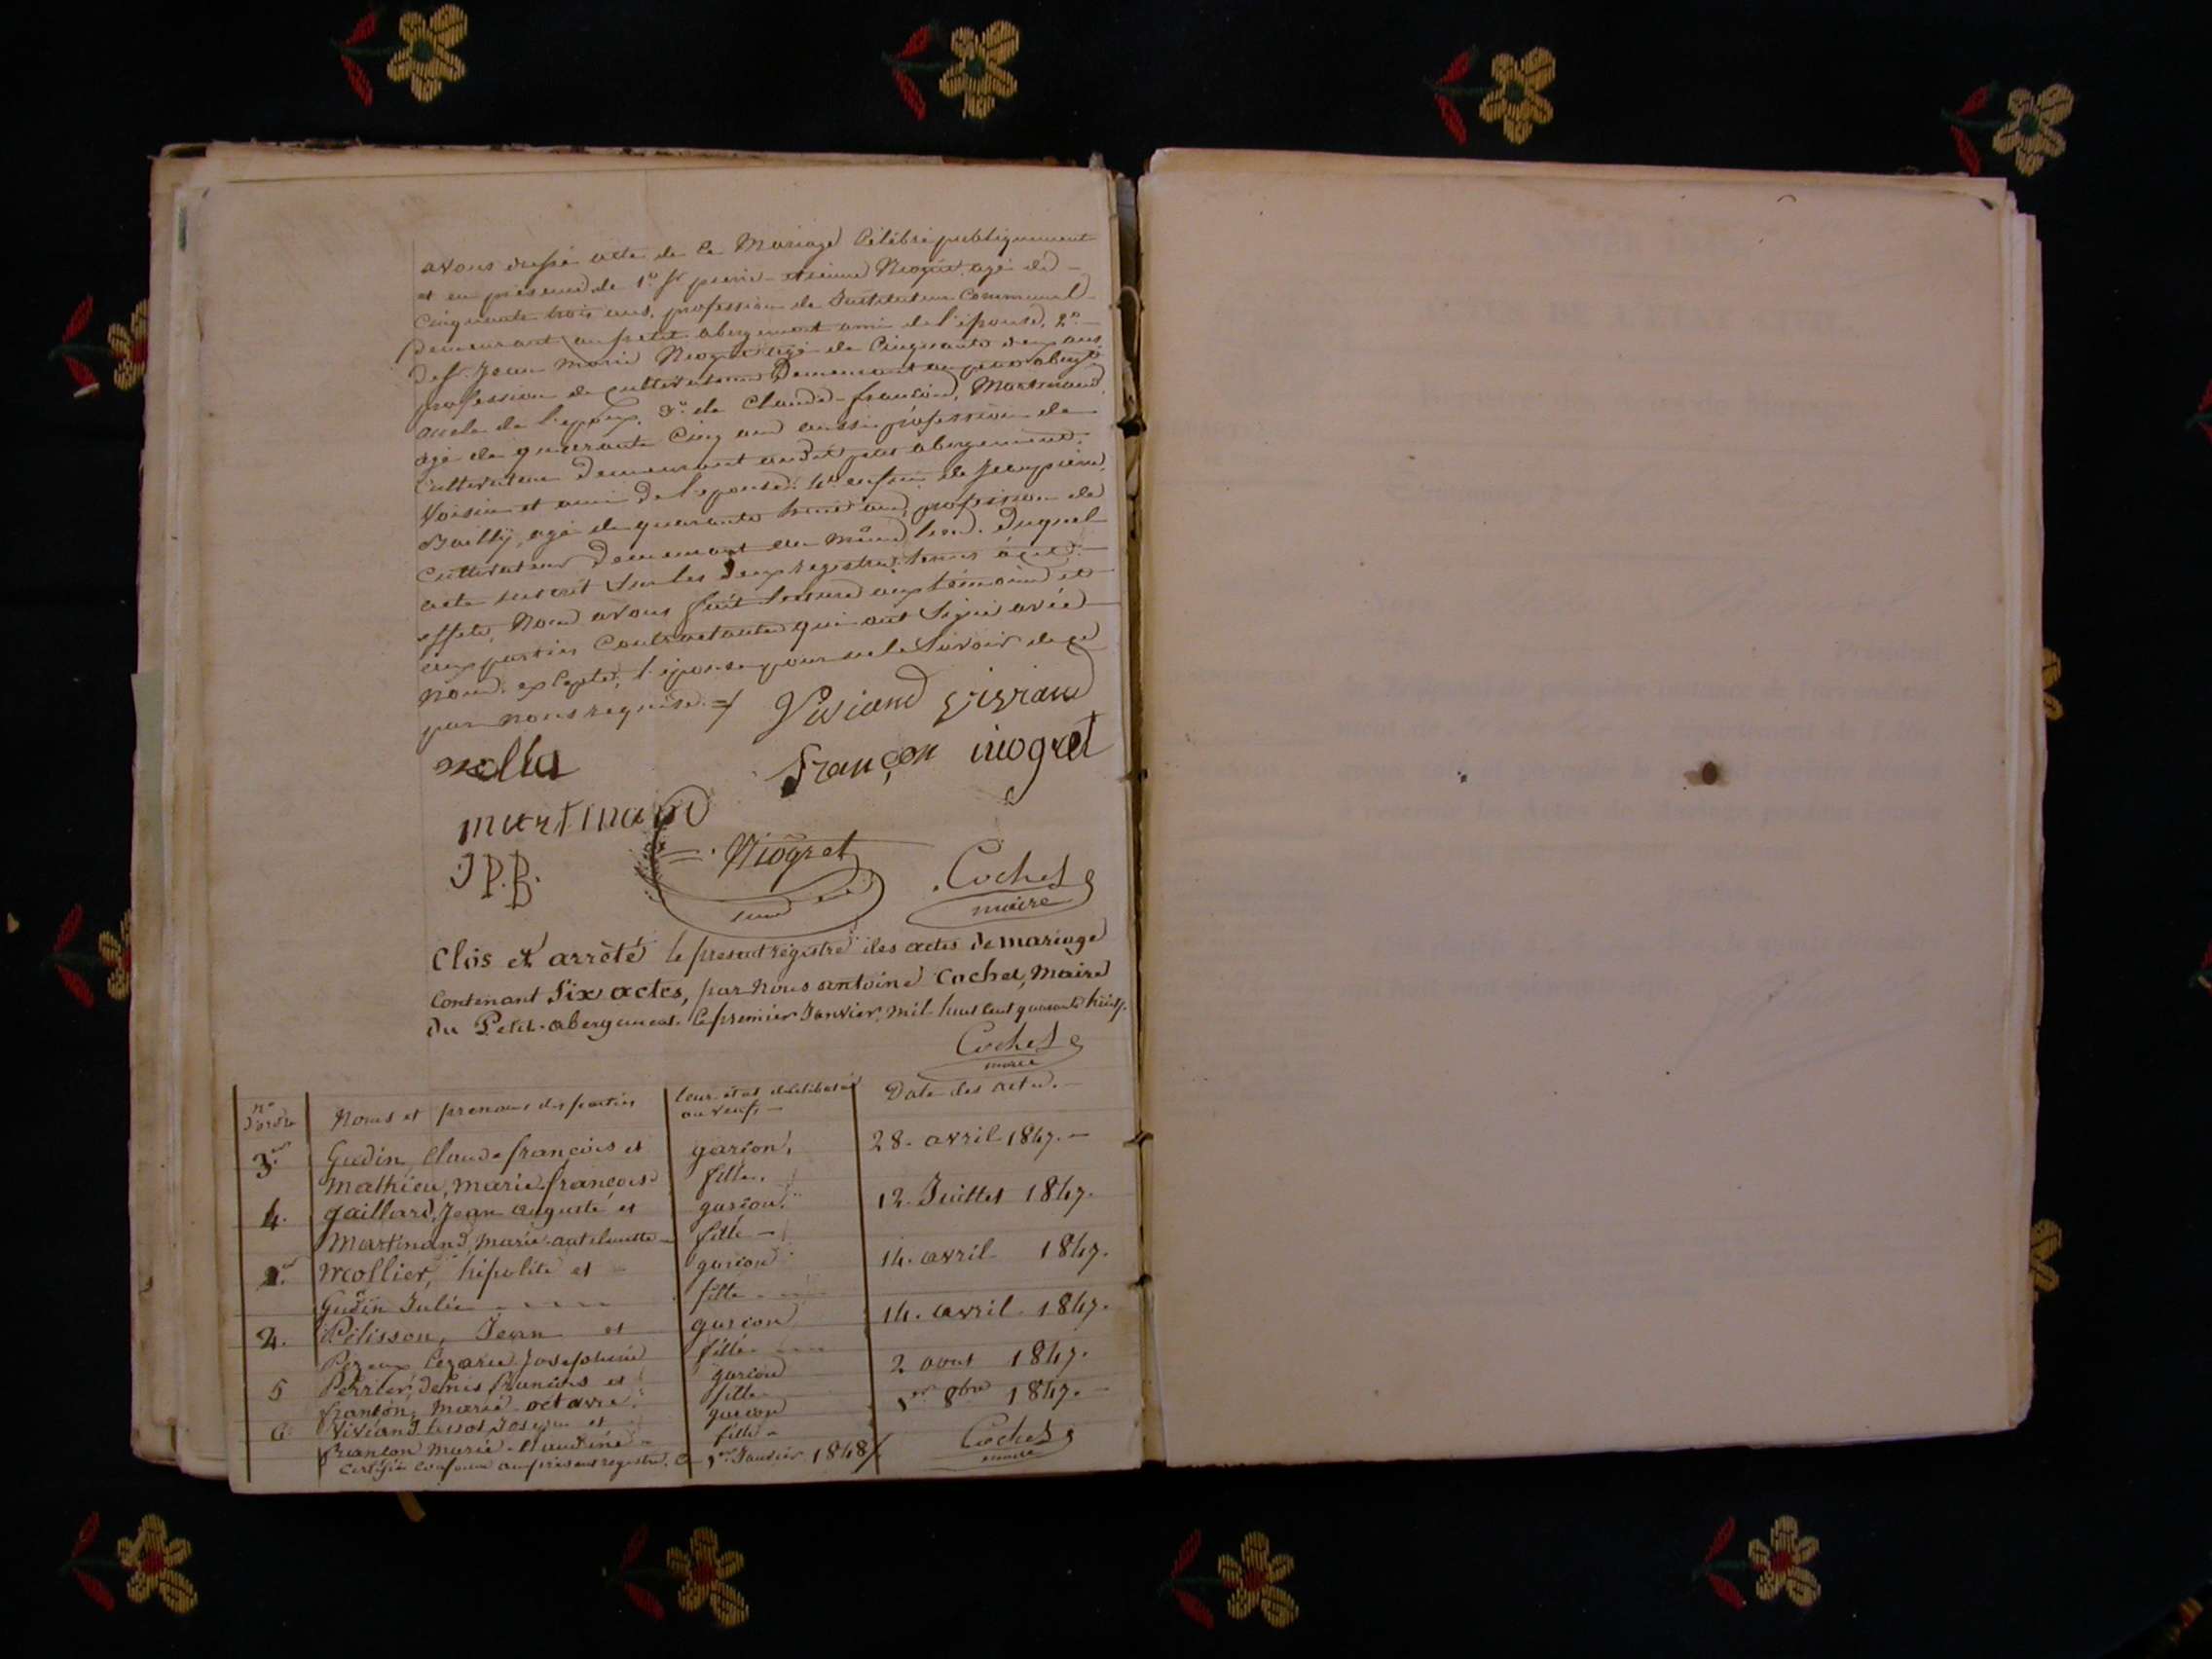 avons dressé acte de ce Mariage Célébré publiquement
et en présence de 1º Sr pierre-etienne Niogret, agé de
Cinquante trois ans, profession de Instituteur Communal
Demeurant au petit abergement ami de l'épouse, 2º
de Sr Jean Marie Niogret agé de Cinquante deux ans
profession de Cultivateur Demeurant au petit aberg.t
oncle de l'époux. 3º de Claude-françois, Martinand
agé de quarante Cinq ans aussi profession de
Cultivateur Demeurant audit petit abergement.
Voisin et ami de l'épouse. 4º enfin de Jean pierre
Bailly, agé de quarante huit ans, profession de
Cultivateur Demeurant au même lieu. Duquel
acte inscrit sur les deux registres tenus à cet
effet, Nous avons fait lecture aux témoins et
aux parties Contractantes qui ont signé avec
nous excepté, l'épouse pour ne le savoir de ce
par nous requise.
Viviand viviand
françon niogret
martinand
J P. B.
Niogret
Cochet
maire
Clos et arrêté le present régistre des actes de mariage
Contenant Six actes, par Nous antoine Cochet, Maire
Du Petit-abergement. le premier Janvier, mil huit cent quarante huit.
Cochet
maire
nº d'ordre Noms et prenoms des parties leur état de célibataire ou veuf, Date des actes.
3. Gudin, Claude françois et garçon, 28. avril 1847.
Mathieu, marie françoise fille.
4. gaillard, Jean auguste et garçon. 12. Juillet 1847.
Martinand, marie-anthelmette fille
1. Mollier, hipolite et garçon 14. avril 1847.
Gudin Julie fille
2. Pélisson, Jean et garçon 14. avril 1847.
Josephine fille
5 Perrier, denis françois et garçon 2 aout 1847.
françon, Marie octavie. fille
6 Viviand Joseph et garçon 1er 8bre 1847.
françon Marie-Claudine fille
Certifié conforme au présent registre. Ce 1er Janvier 1848
Cochet
maire